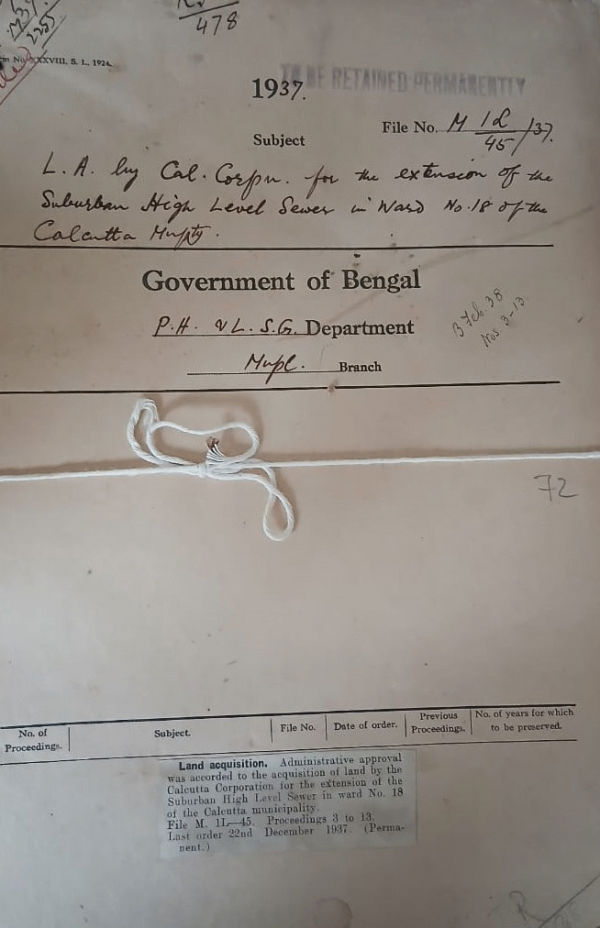 478
XXVIII, S. I., 1924.
TO BE RETAINED PERMANENTLY
1937.
Subject
File No. M 1L/45/37.
L.A. by Cal. Corpn. for the extension of the
Suburban High Level Sewer in Ward No. 18 of the
Calcutta Mupty.
Government of Bengal
P.H. & L.S.G. Department
Mupl. Branch
B Feb. 38
Nos. 3-13
72
No. of Proceedings.
Subject.
File No.
Date of order.
Previous Proceedings.
No. of years for which to be preserved.
Land acquisition. Administrative approval
was accorded to the acquisition of land by the
Calcutta Corporation for the extension of the
Suburban High Level Sewer in ward No. 18
of the Calcutta municipality.
File M. 1L—45. Proceedings 3 to 13.
Last order 22nd December 1937. (Perma-
nent.)
R